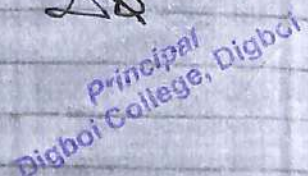 Principal
Digboi College, Digboi